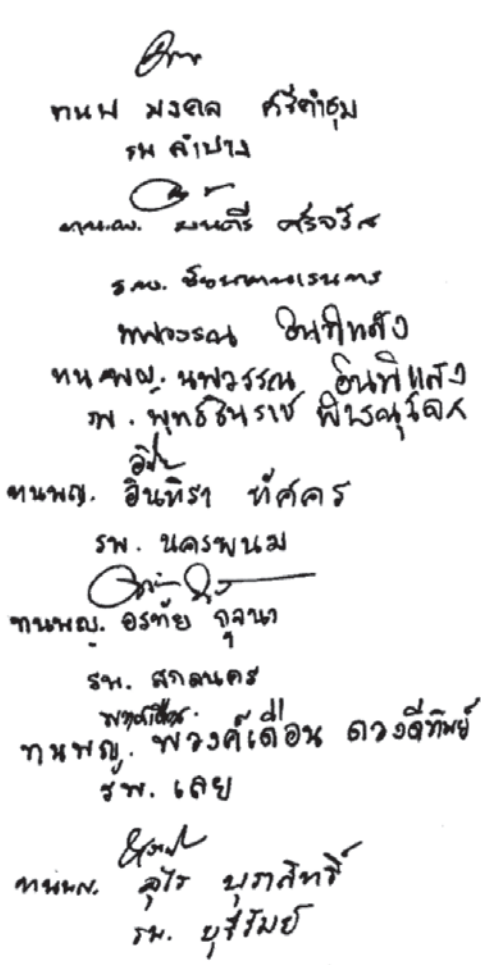 ทนพ มงคล ศรีคำชุม
รพ ลำปาง
ทนพญ. มนตรี
รพ.
นพวรรณ อินทิแสง
ทนพญ. นพวรรณ อินทิแสง
รพ. พุทธชินราช พิษณุโลก
ทนพญ. อินทิรา ทัศคร
รพ. นครพนม
ทนพญ. อรทัย กุจนา
รพ. สกลนคร
ทนพญ. พวงค์เดือน ดวงดีทิพย์
รพ. เลย
ทนพญ. อุไร บุราสิทธิ์
รพ. บุรีรัมย์